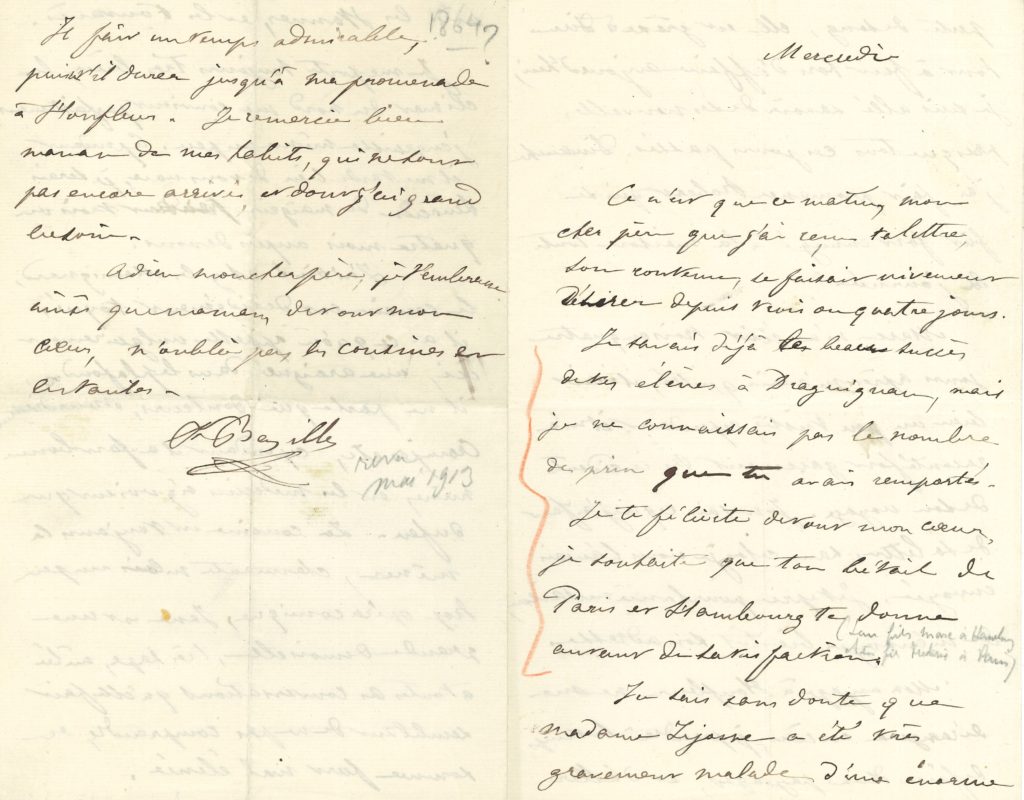 1864?
Il fait un temps admirable,
puisse-t'il durer jusqu'à ma promenade
à Honfleur. Je remercie bien
maman de mes habits, qui ne sont
pas encore arrivés, et dont j'ai grand
besoin.
Adieu mon cher père, je t'embrasse
ainsi que maman, de tout mon
cœur, n'oublie pas les cousines et
les tantes.
F. Bazille
mai 1913
Mercredi
Ce n'est que ce matin, mon
cher père que j'ai reçu ta lettre,
son contenu, se faisait vivement
désirer depuis trois ou quatre jours.
Je savais déjà les beaux succès
de tes élèves à Draguignan, mais
je ne connaissais pas le nombre
de prix que tu avais remporté.
Je te félicite de tout mon cœur,
je souhaite que ton bétail de
Paris et Hambourg te donne
autant de satisfaction.
(son fils Marc à Hambourg
et à Paris)
Tu sais sans doute que
madame Lejosne a été très
gravement malade d'une énorme